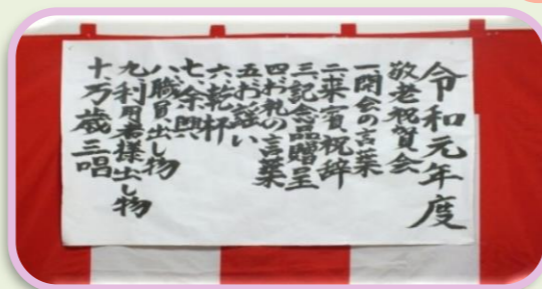 令和元年度
敬老祝賀会
一、開会の言葉
二、来賓祝辞
三、記念品贈呈
四、お礼の言葉
五、お謡い
六、乾杯
七、余興
八、職員出し物
九、利用者様出し物
十、万歳三唱